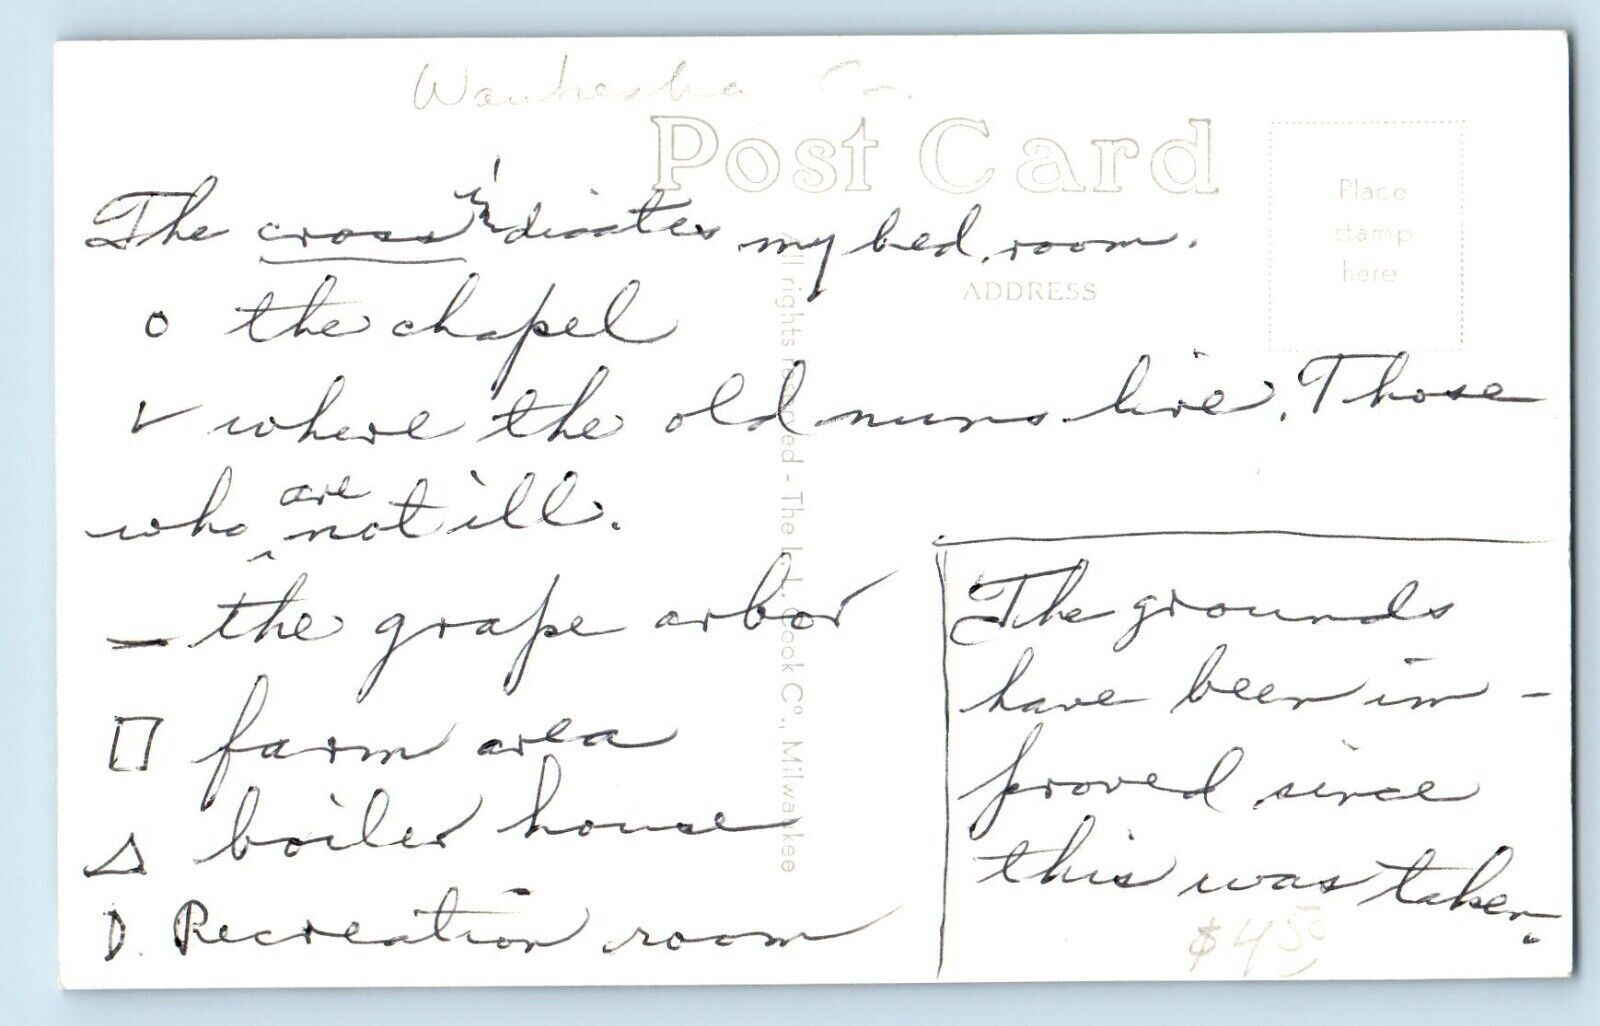 Waukesha Co.
Post Card
Place
stamp
here
ADDRESS
The cross indicates my bed room.
o the chapel
✓ where the old nuns live. Those
who are not ill.
— the grape arbor
□ farm area
△ boiler house
D. Recreation room
The grounds
have been im-
proved since
this was taken.
$4.50
All rights reserved - The L. L. Cook Co., Milwaukee